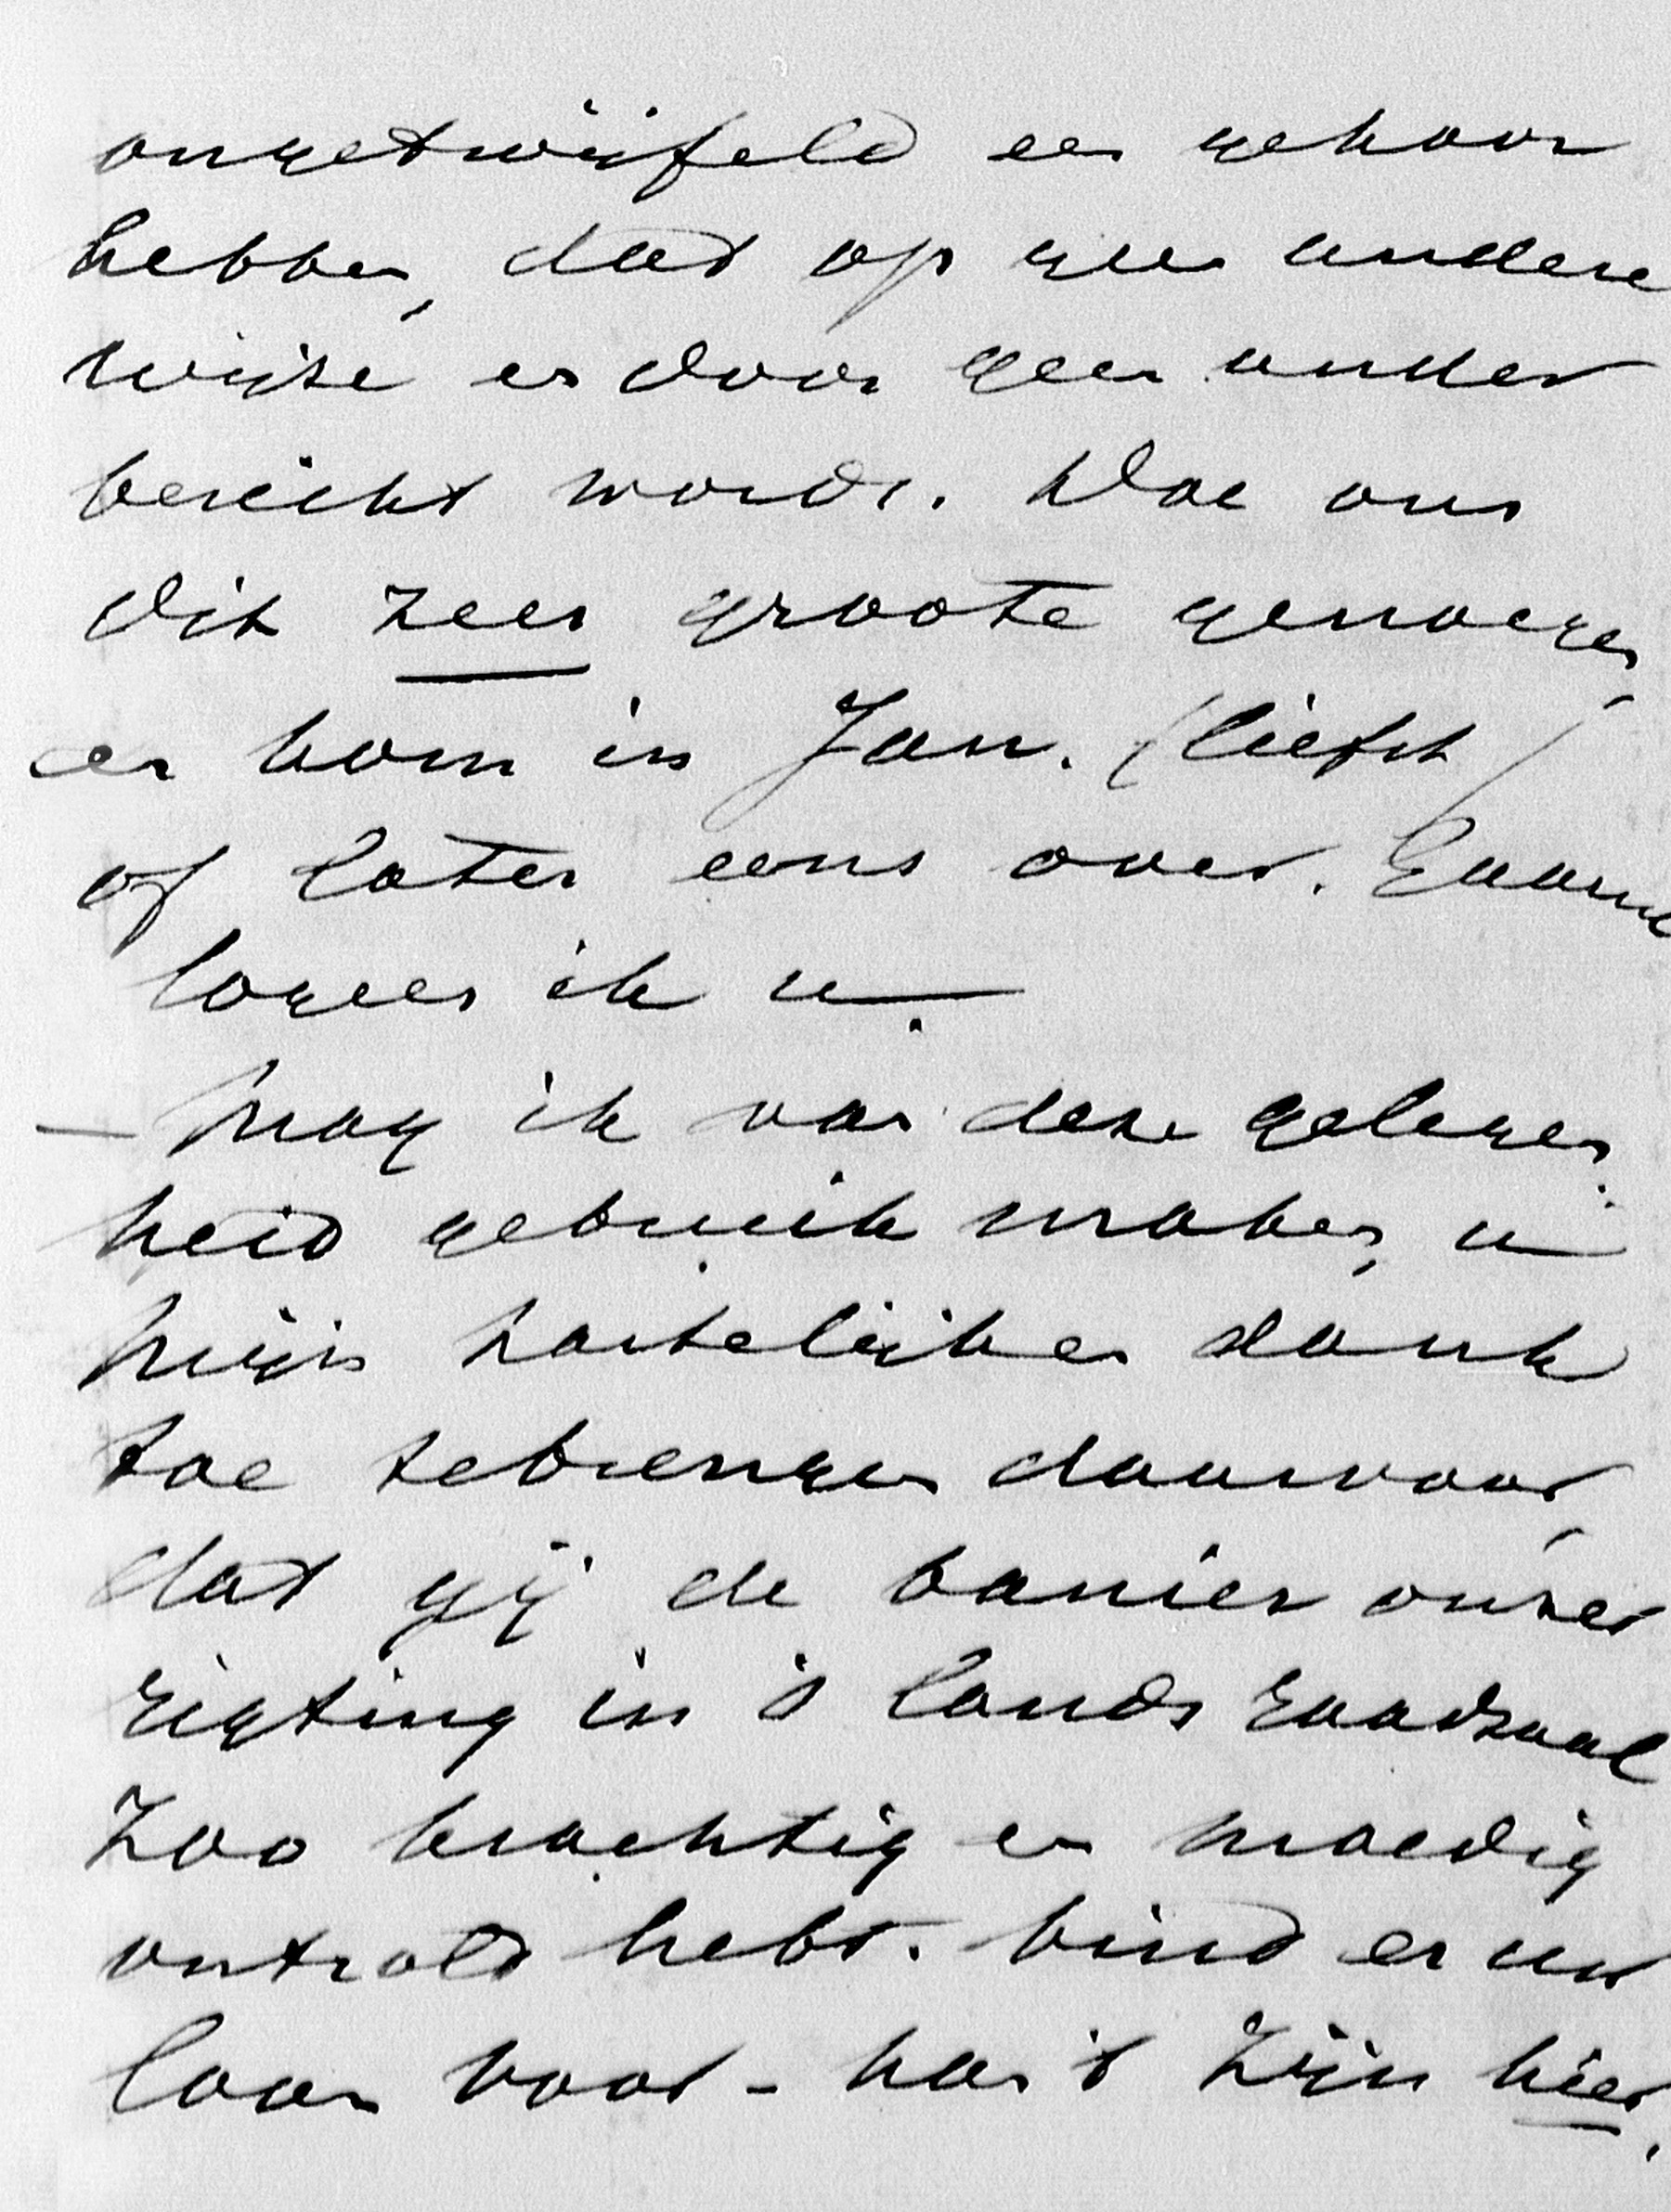 ongetwijfeld een gehoor
hebben, dat op geen andere
wijze en door geen ander
bereikt wordt. Doe ons
dit zeer groote genoegen,
en kom in Jan. (liefst)
of later eens over. Gaarne
logeer ik u.
— Mag ik van deze gelegen-
heid gebruik maken, u
mijn hartelijken dank
toe te brengen daarvoor,
dat gij de banier onzer
rigting in 's lands raadzaal
zoo krachtig en moedig
ontrold hebt. Vind er uw
loon voor - kan 't zijn hier,